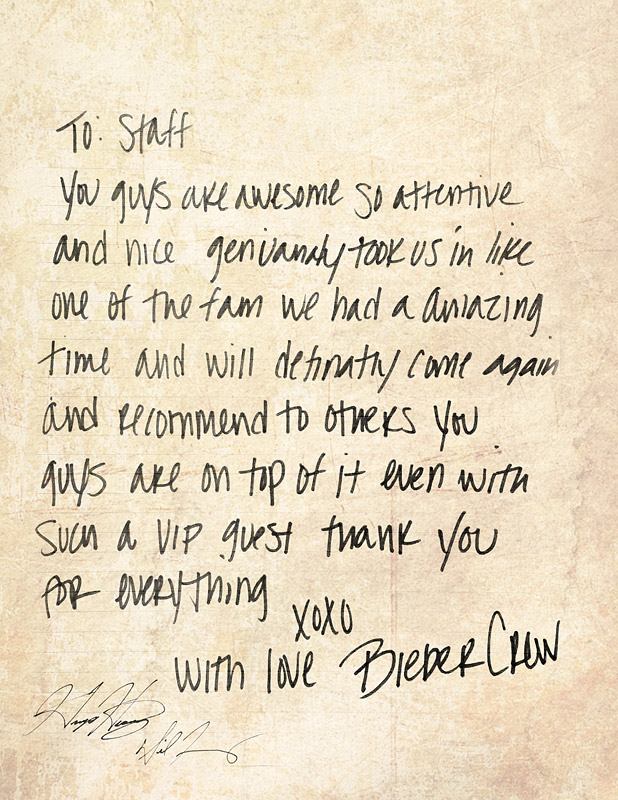 To: Staff
You guys are awesome so attentive
and nice genivanaly took us in like
one of the fam we had a amazing
time and will definatly come again
and recommend to others you
guys are on top of it even with
such a VIP guest thank you
for everything
xoxo
with love Bieber Crew